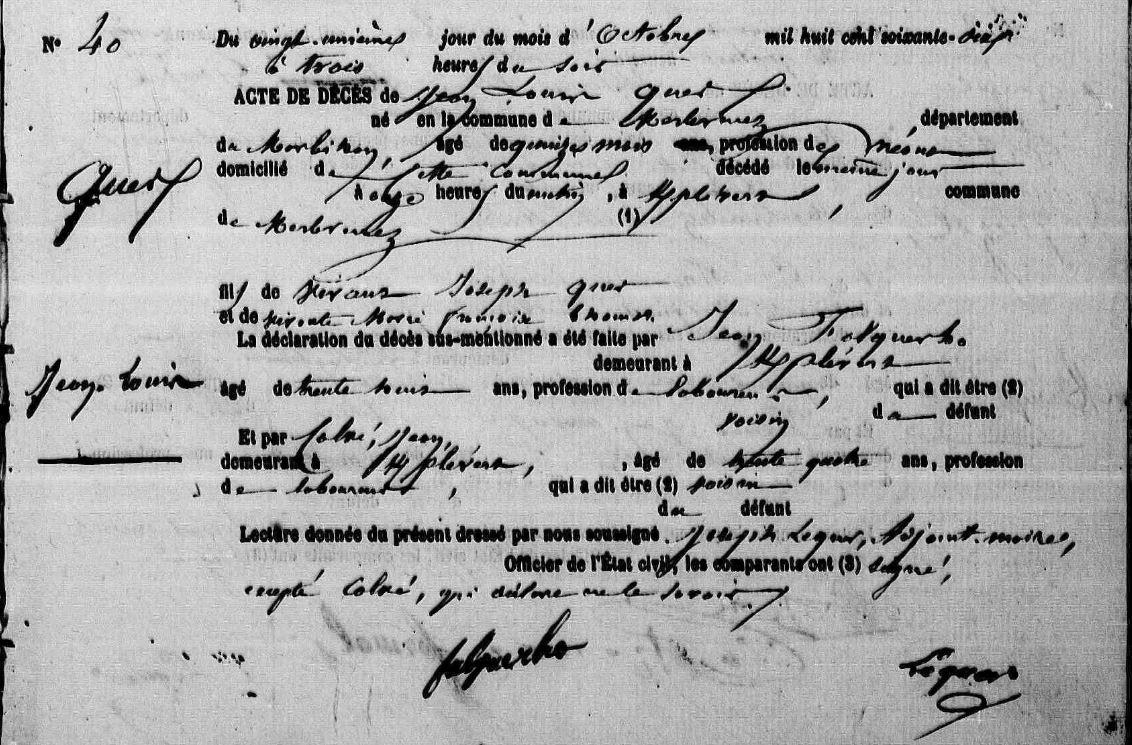 N° 40
Du vingt-unième jour du mois d'Octobre mil huit cent soixante-dix
à trois heures du soir
ACTE DE DÉCÈS de Jean Louis Quer
né en la commune de département
du Morbihan, âgé de quinze mois ans, profession de néant
Quer
domicilié de cette commune décédé le même jour
à onze heures du matin, à commune
de (1)
fils de Joseph quer
et de Marie
La déclaration du décès sus-mentionné a été faite par Jean
demeurant à
Jean Louis
âgé de trente ans, profession de laboureur, qui a dit être (2)
voisin du défunt
Et par Jean,
demeurant à , âgé de trente quatre ans, profession
de laboureur, qui a dit être (2) voisin
du défunt
Lecture donnée du présent dressé par nous soussigné Joseph Adjoint-maire,
Officier de l'État civil, les comparants ont (3) signé,
excepté qui déclare ne le savoir.